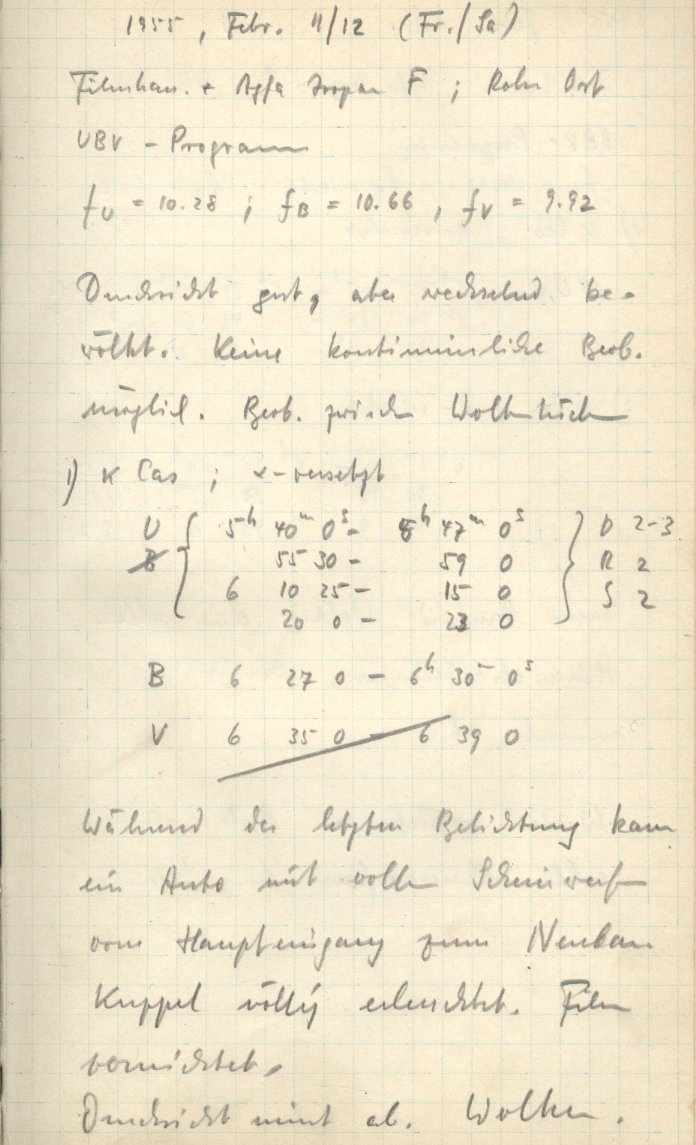 1955, Febr. 11/12 (Fr./Sa)
Filmkam. + Agfa Isopan F ; Rohr Ost
UBV - Programm
fU = 10.28 ; fB = 10.66 , fV = 9.92
Durchsicht gut, aber wechselnd be-
wölkt. Keine kontinuierliche Beob.
möglich. Beob. zwischen Wolkenlücken
1) κ Cas ; α-versetzt
U { 5h 40m 0s - 5h 47m 0s } D 2-3
B 55 30 - 59 0 R 2
6 10 25 - 15 0 S 2
20 0 - 23 0
B 6 27 0 - 6h 30m 0s
V 6 35 0 - 6 39 0
Während der letzten Belichtung kam
ein Auto mit vollen Scheinwerfern
vom Haupteingang zum Neubau
Kuppel völlig erleuchtet. Film
vernichtet.
Durchsicht nimmt ab. Wolken.